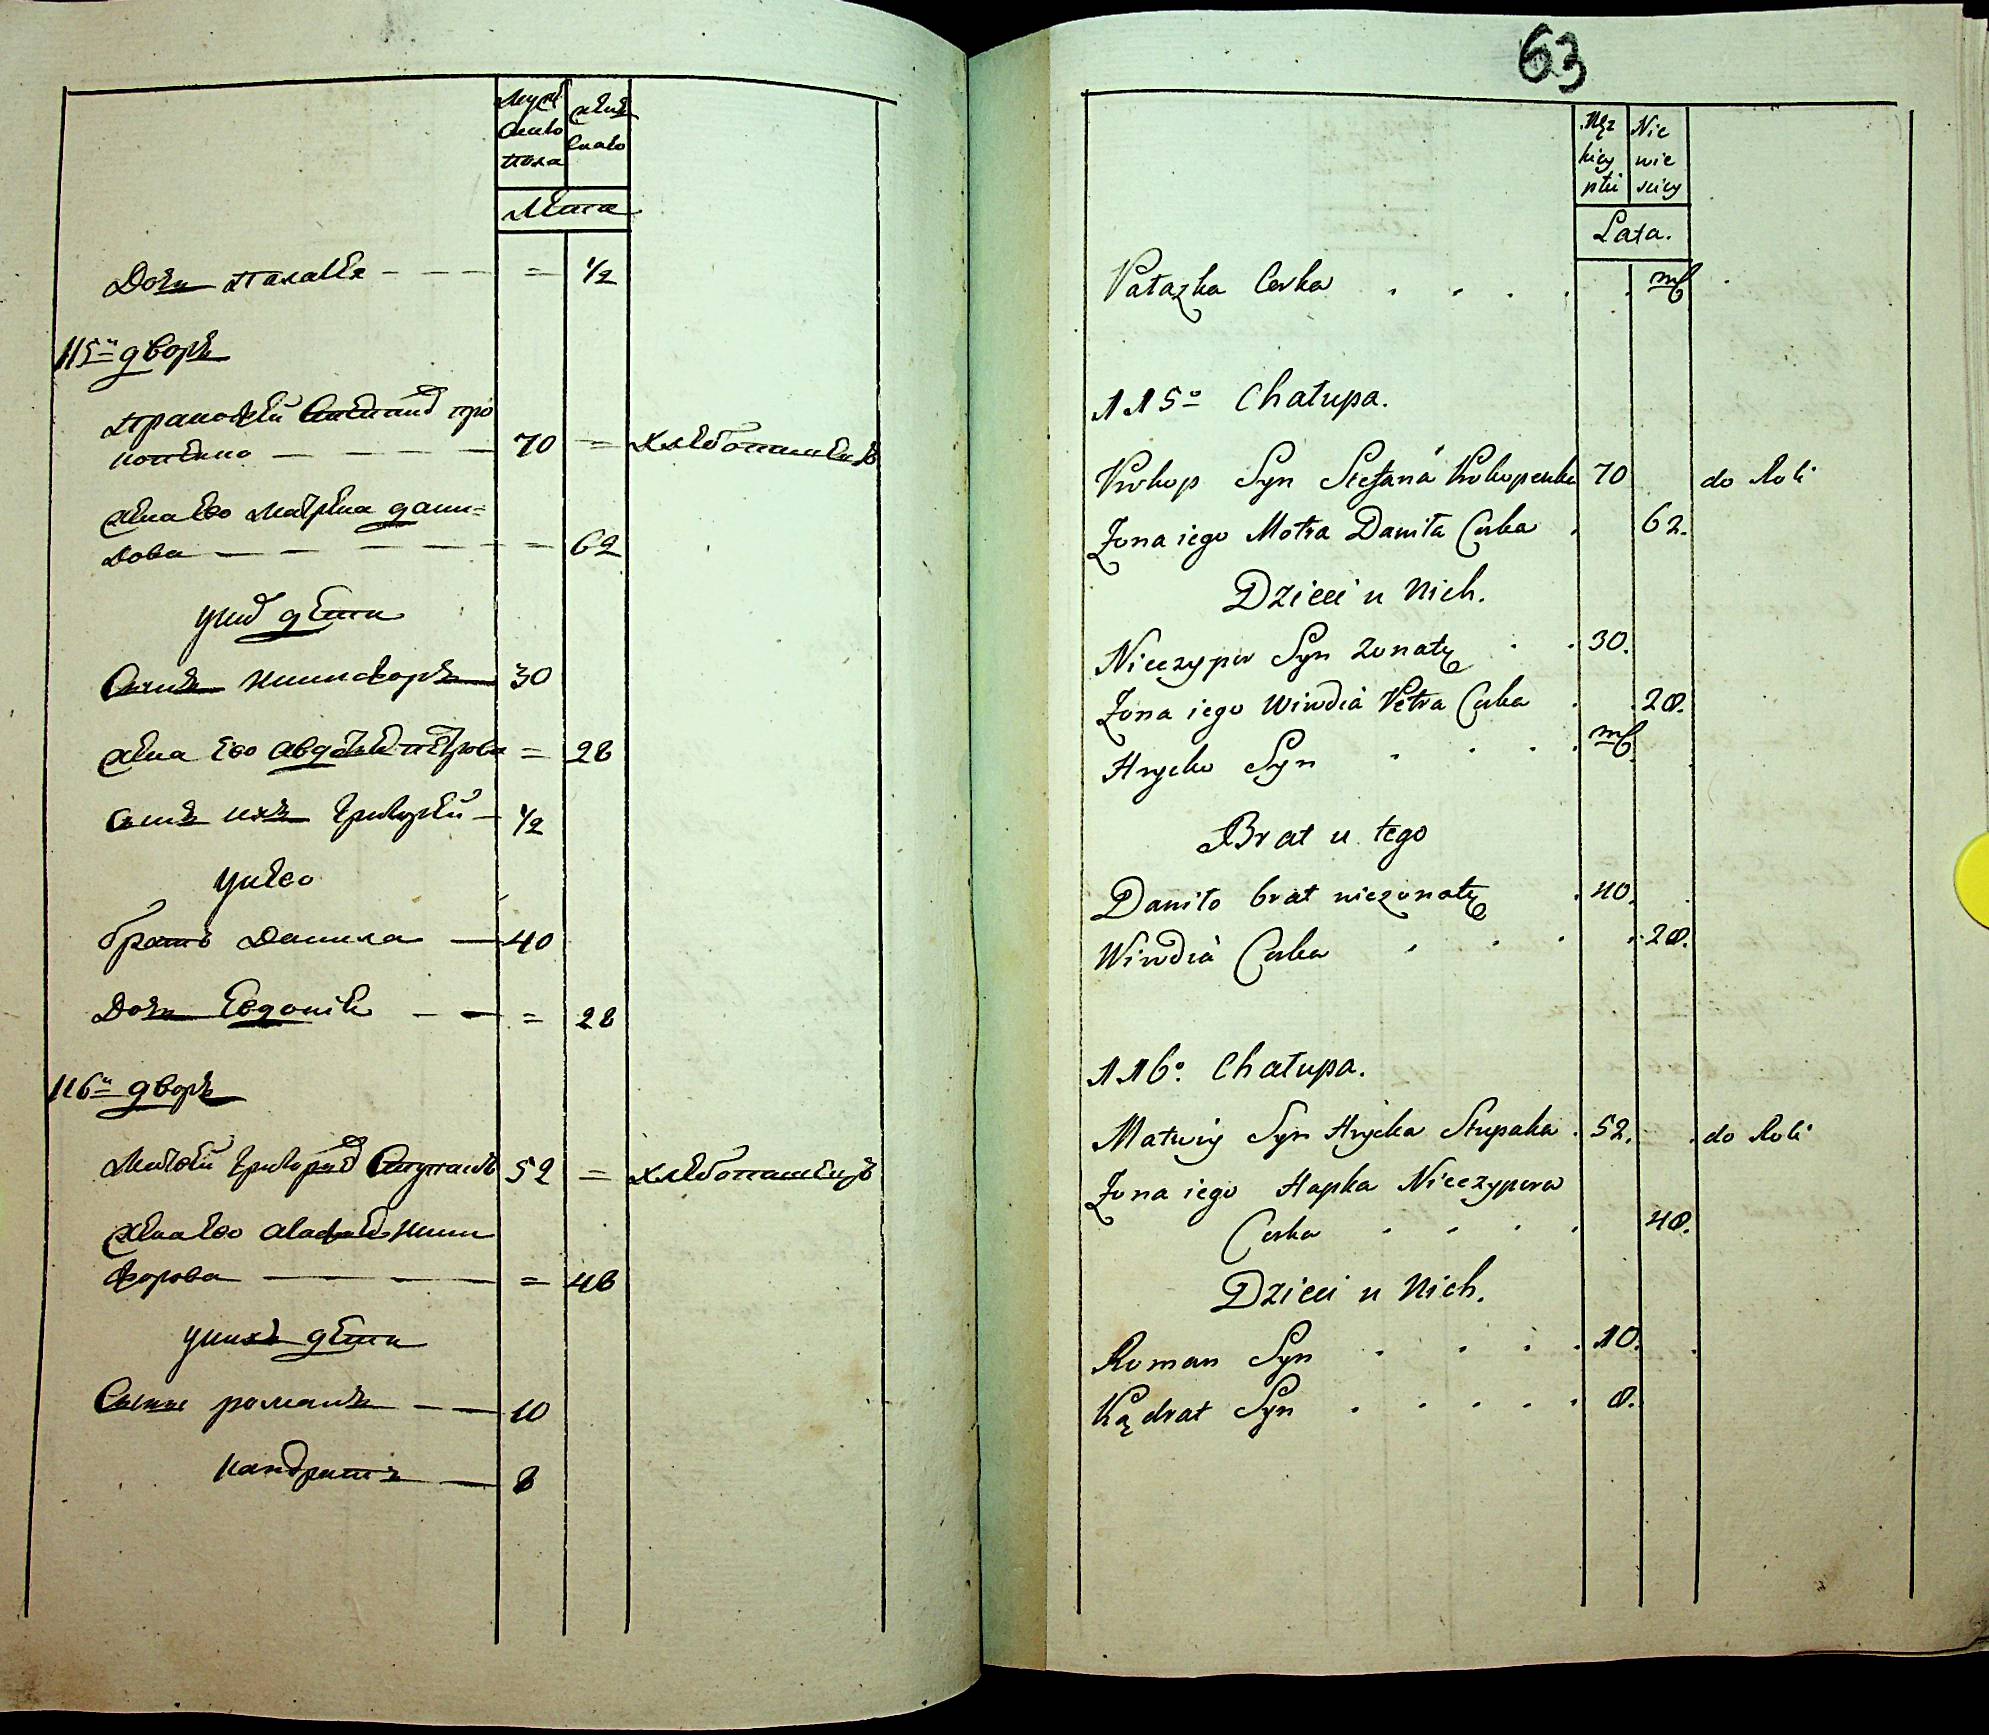 Муж
ского
пола
женс
скаго
Лета
Дочь палажка — — — = 1/2
115й дворъ
70 = хлебопашецъ
жена ево матрена дани=
лова — — — — = 62
у них дети
Сынъ никифоръ — 30
жена ево авдотья петрова = 28
сынъ ихъ григорей — 1/2
у нево
братъ Данила — 40
Дочь Евдокия — — = 28
116й дворъ
Матвей григорьев Ступакъ 52 = хлебопашецъ
жена ево агафья ники
форова — — — = 48
у нихъ дети
Сынъ романъ — — 10
кандратъ — 8
63
Męz
kiey
płci
Nie
wie
sciey
Lata.
Pałazka Corka . . . . . mſ .
115o Chałupa.
Prokop Syn Stefana Prokopenko 70 do Roli
Zona iego Motra Daniła Corka . 62.
Dzieci u Nich.
Nieczypor Syn żonaty . . 30.
Zona iego Wiwdia Petra Corka . . 28.
Hrycko Syn . . . . mſ.
Brat u tego
Daniło brat nieżonaty . 40.
Wiwdia Corka . . . . 28.
116o. Chałupa.
Matwiy Syn Hrycka Stupaka . 52. . do Roli
Zona iego Hapka Nieczypora
Corka . . . . 48.
Dzieci u Nich.
Roman Syn . . . . 10. .
Kądrat Syn . . . . . 8.